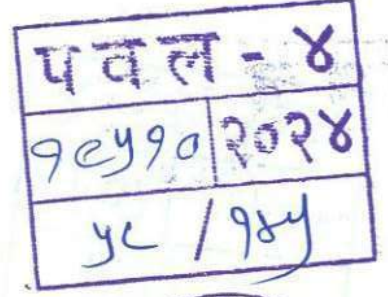 पवल - ४
१९५१० २०२४
५८ / १४५